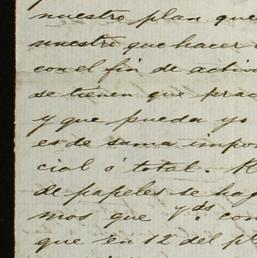 nuestro plan que
nuestro que hacer
con el fin de activ
se tienen que prac
y que pueda yo
es de suma impor
cial ó total. R
de papeles se hag
mos que yds. con
que en 12 del p